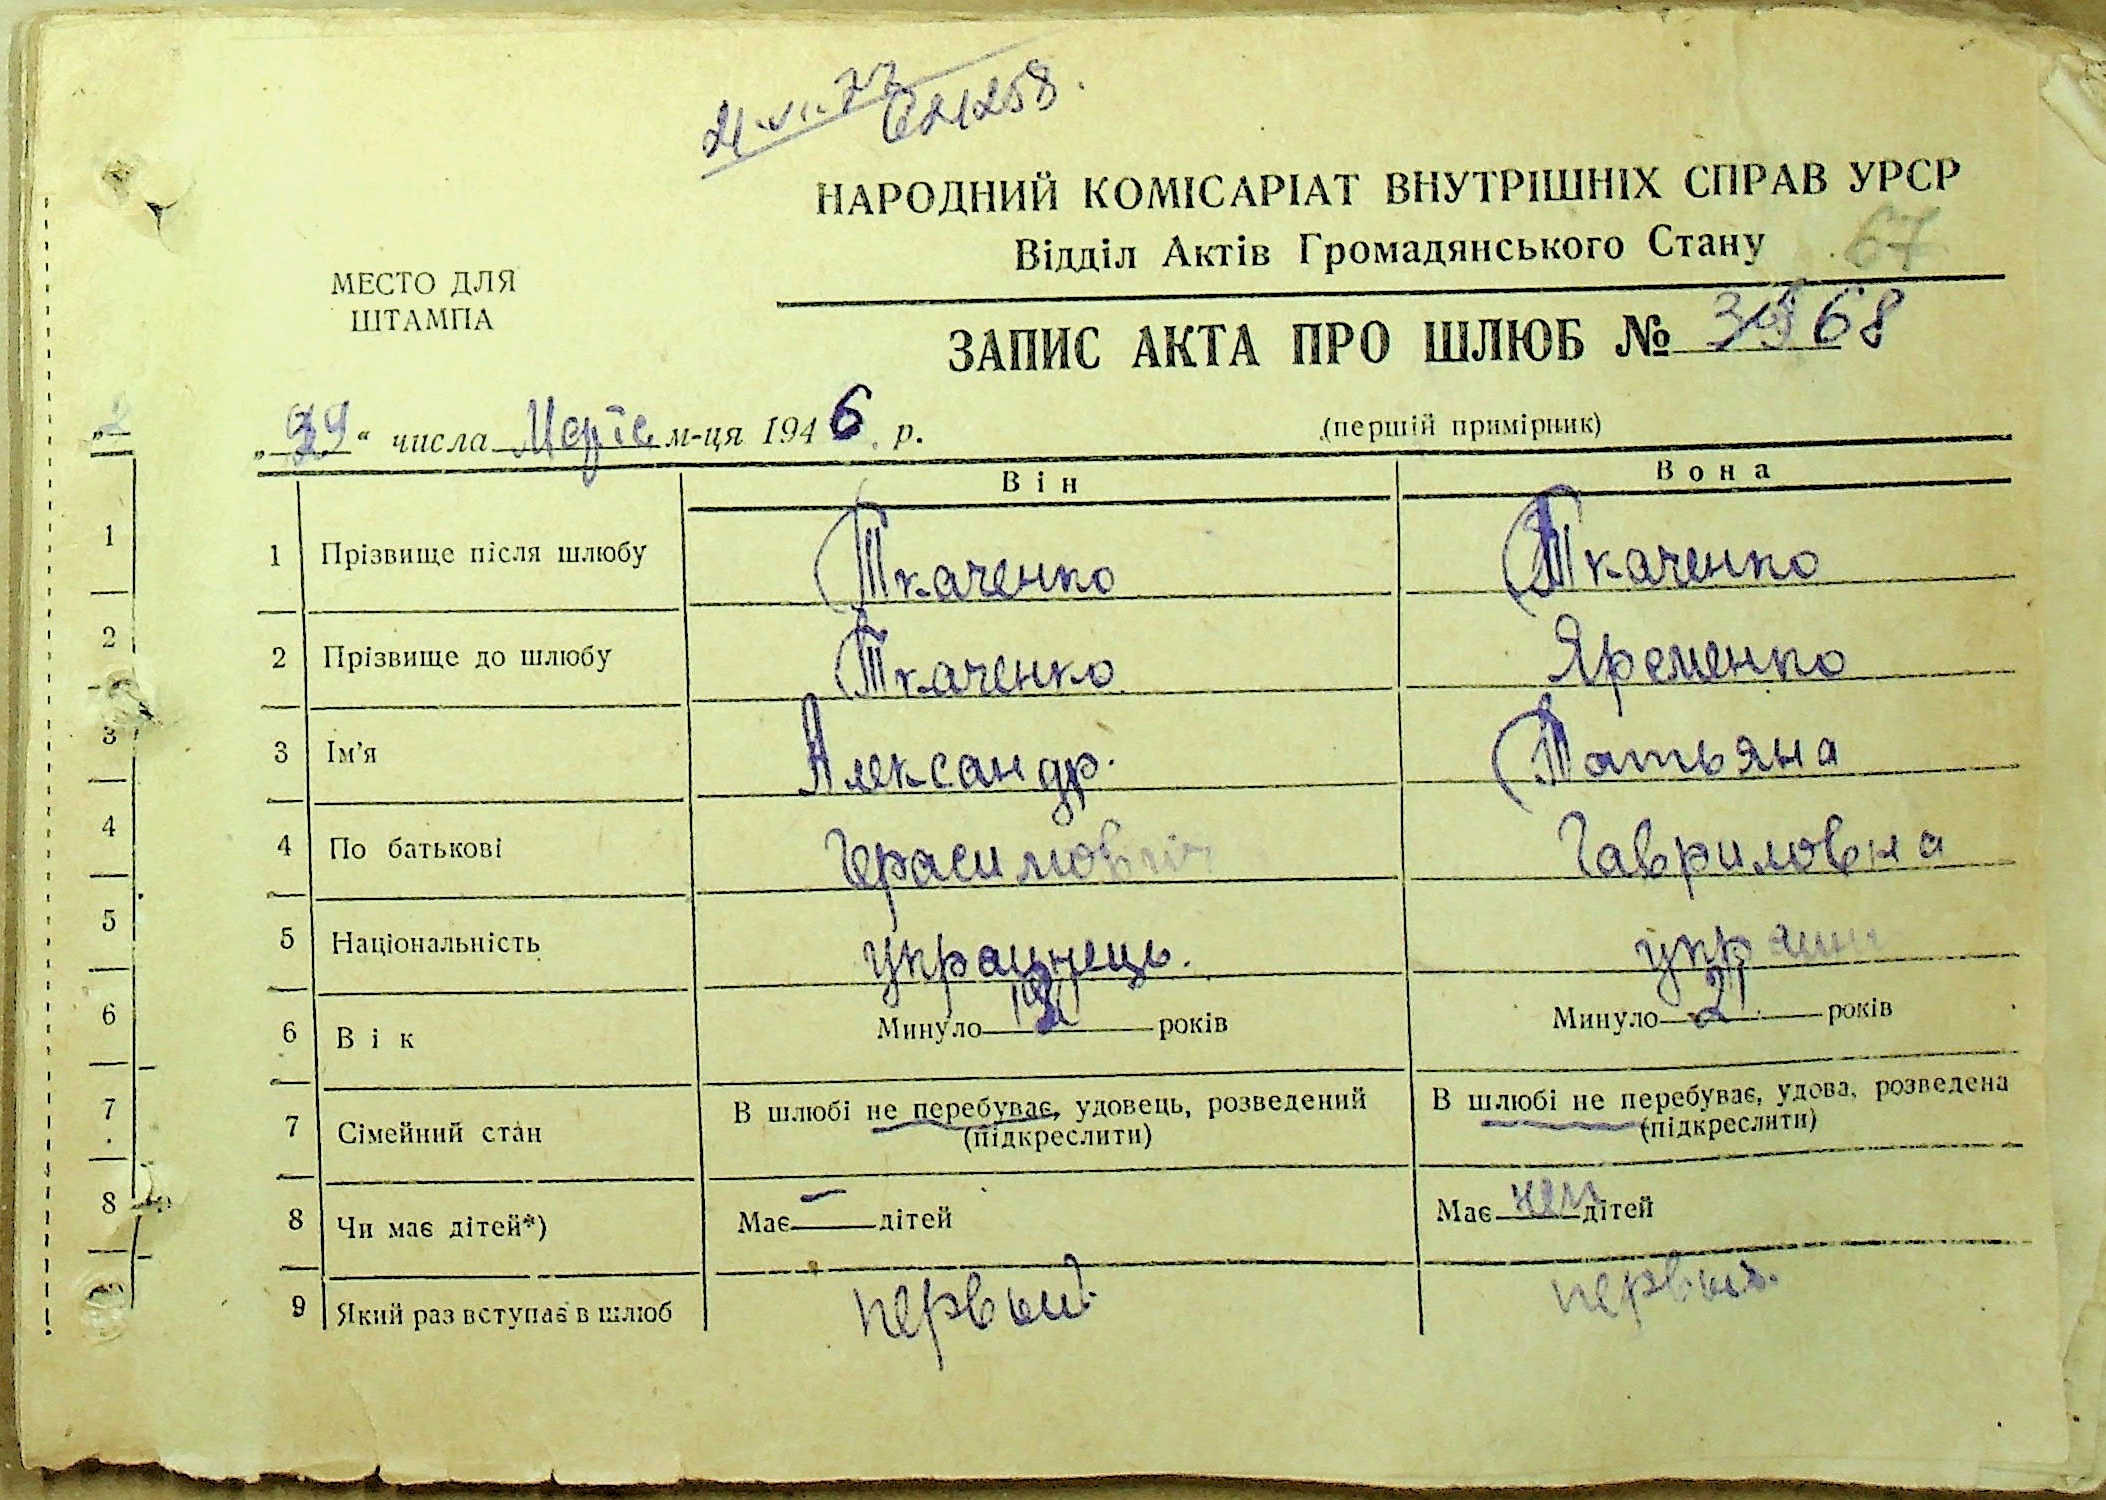 21.VI.77
621258.
НАРОДНИЙ КОМІСАРІАТ ВНУТРІШНІХ СПРАВ УРСР
Відділ Актів Громадянського Стану 67
МЕСТО ДЛЯ
ШТАМПА
ЗАПИС АКТА ПРО ШЛЮБ № 68
„ “ числа Марта м-ця 1946 р.
(першій примірник)
Він Вона
1 1 Прізвище після шлюбу Ткаченко Ткаченко
2 2 Прізвище до шлюбу Ткаченко Яременко
3 3 Ім'я Александр. Татьяна
4 4 По батькові Герасимович Гавриловна
5 5 Національність украинець. украин
6 6 Вік Минуло років Минуло 21 років
7 7 Сімейний стан В шлюбі не перебуває, удовець, розведений (підкреслити) В шлюбі не перебуває, удова, розведена (підкреслити)
8 8 Чи має дітей*) Має – дітей Має нет дітей
9 Який раз вступає в шлюб первый первый.